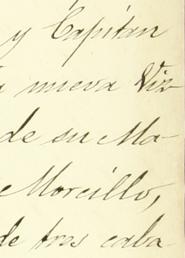 y Capitan
nueva Viz
de su Ma-
Morcillo,
de tres caba